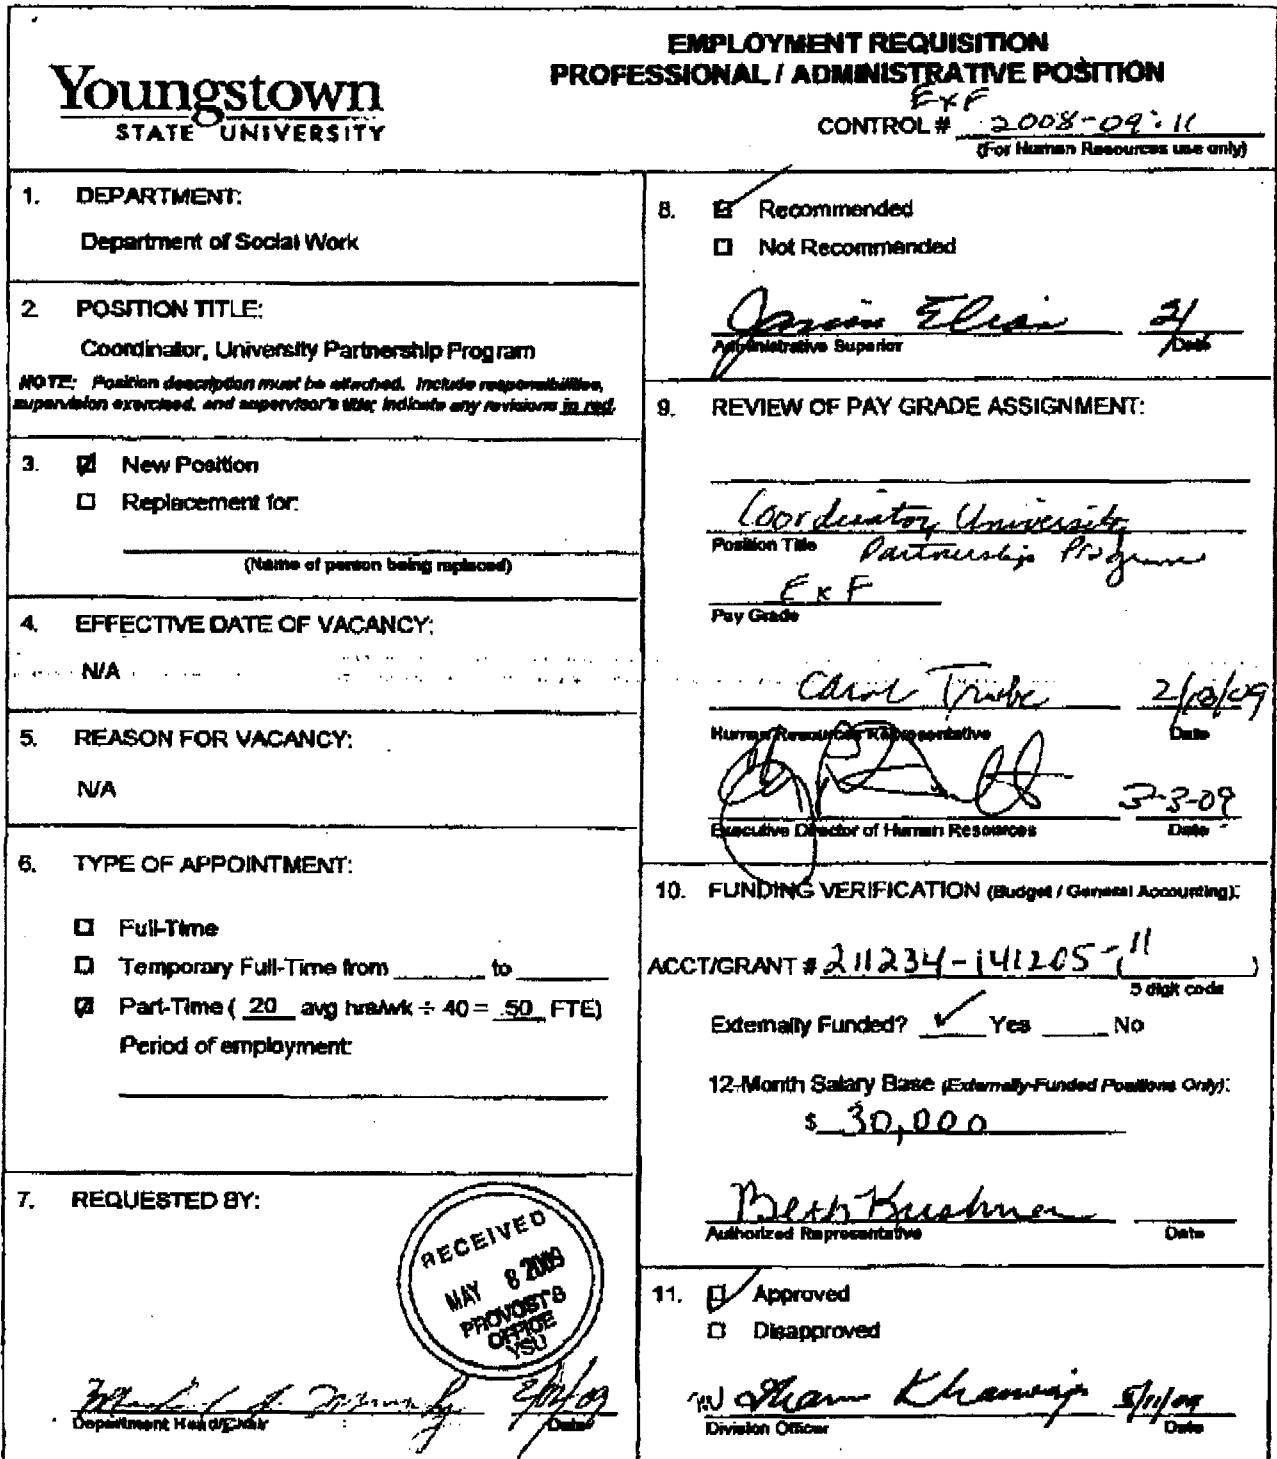 Youngstown
STATE UNIVERSITY
EMPLOYMENT REQUISITION
PROFESSIONAL / ADMINISTRATIVE POSITION
ExF
CONTROL # 2008-09-11
(For Human Resources use only)
1. DEPARTMENT:
Department of Social Work
2. POSITION TITLE:
Coordinator, University Partnership Program
NOTE: Position description must be attached. Include responsibilities,
supervision exercised, and supervisor's title; indicate any revisions in red.
3. ☑ New Position
☐ Replacement for:
(Name of person being replaced)
4. EFFECTIVE DATE OF VACANCY:
N/A
5. REASON FOR VACANCY:
N/A
6. TYPE OF APPOINTMENT:
☐ Full-Time
☐ Temporary Full-Time from ______ to ______
☑ Part-Time ( 20 avg hrs/wk ÷ 40 = .50 FTE)
Period of employment:
7. REQUESTED BY:
RECEIVED
MAY 8 2009
PROVOST'S
OFFICE
YSU
Department Head/Chair Date
8. ☑ Recommended
☐ Not Recommended
Administrative Superior Date
9. REVIEW OF PAY GRADE ASSIGNMENT:
Coordinator, University
Position Title Partnership Program
ExF
Pay Grade
Carol Trube
Human Resources Representative Date
3-3-09
Executive Director of Human Resources Date
10. FUNDING VERIFICATION (Budget / General Accounting):
ACCT/GRANT # 211234-141205-(11 )
5 digit code
Externally Funded? ✓ Yes ____ No
12-Month Salary Base (Externally-Funded Positions Only):
$ 30,000
Beth Kushner
Authorized Representative Date
11. ☑ Approved
☐ Disapproved
5/11/09
Division Officer Date